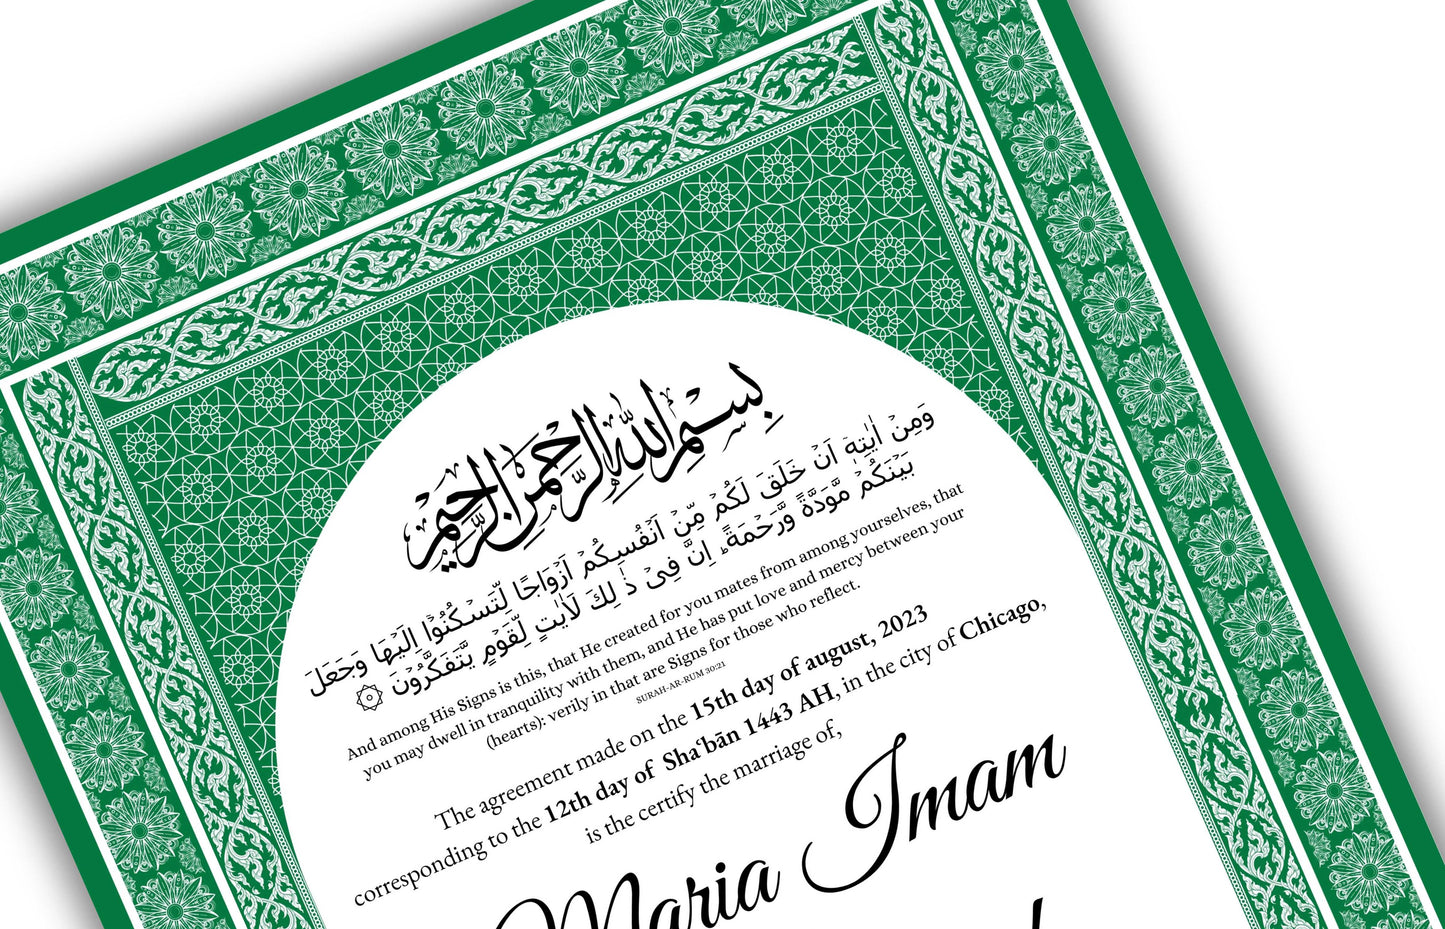 بِسْمِ اللّٰهِ الرَّحْمٰنِ الرَّحِيْمِ
وَمِنْ اٰيٰتِهٖۤ اَنْ خَلَقَ لَكُمْ مِّنْ اَنْفُسِكُمْ اَزْوَاجًا لِّتَسْكُنُوْۤا اِلَيْهَا وَجَعَلَ
بَيْنَكُمْ مَّوَدَّةً وَّرَحْمَةً ؕ اِنَّ فِىْ ذٰ لِكَ لَاٰيٰتٍ لِّقَوْمٍ يَّتَفَكَّرُوْنَ ۞
And among His Signs is this, that He created for you mates from among yourselves, that
you may dwell in tranquility with them, and He has put love and mercy between your
(hearts): verily in that are Signs for those who reflect.
SURAH-AR-RUM 30:21
The agreement made on the 15th day of august, 2023
corresponding to the 12th day of Sha‘bān 1443 AH, in the city of Chicago,
is the certify the marriage of,
Maria Imam